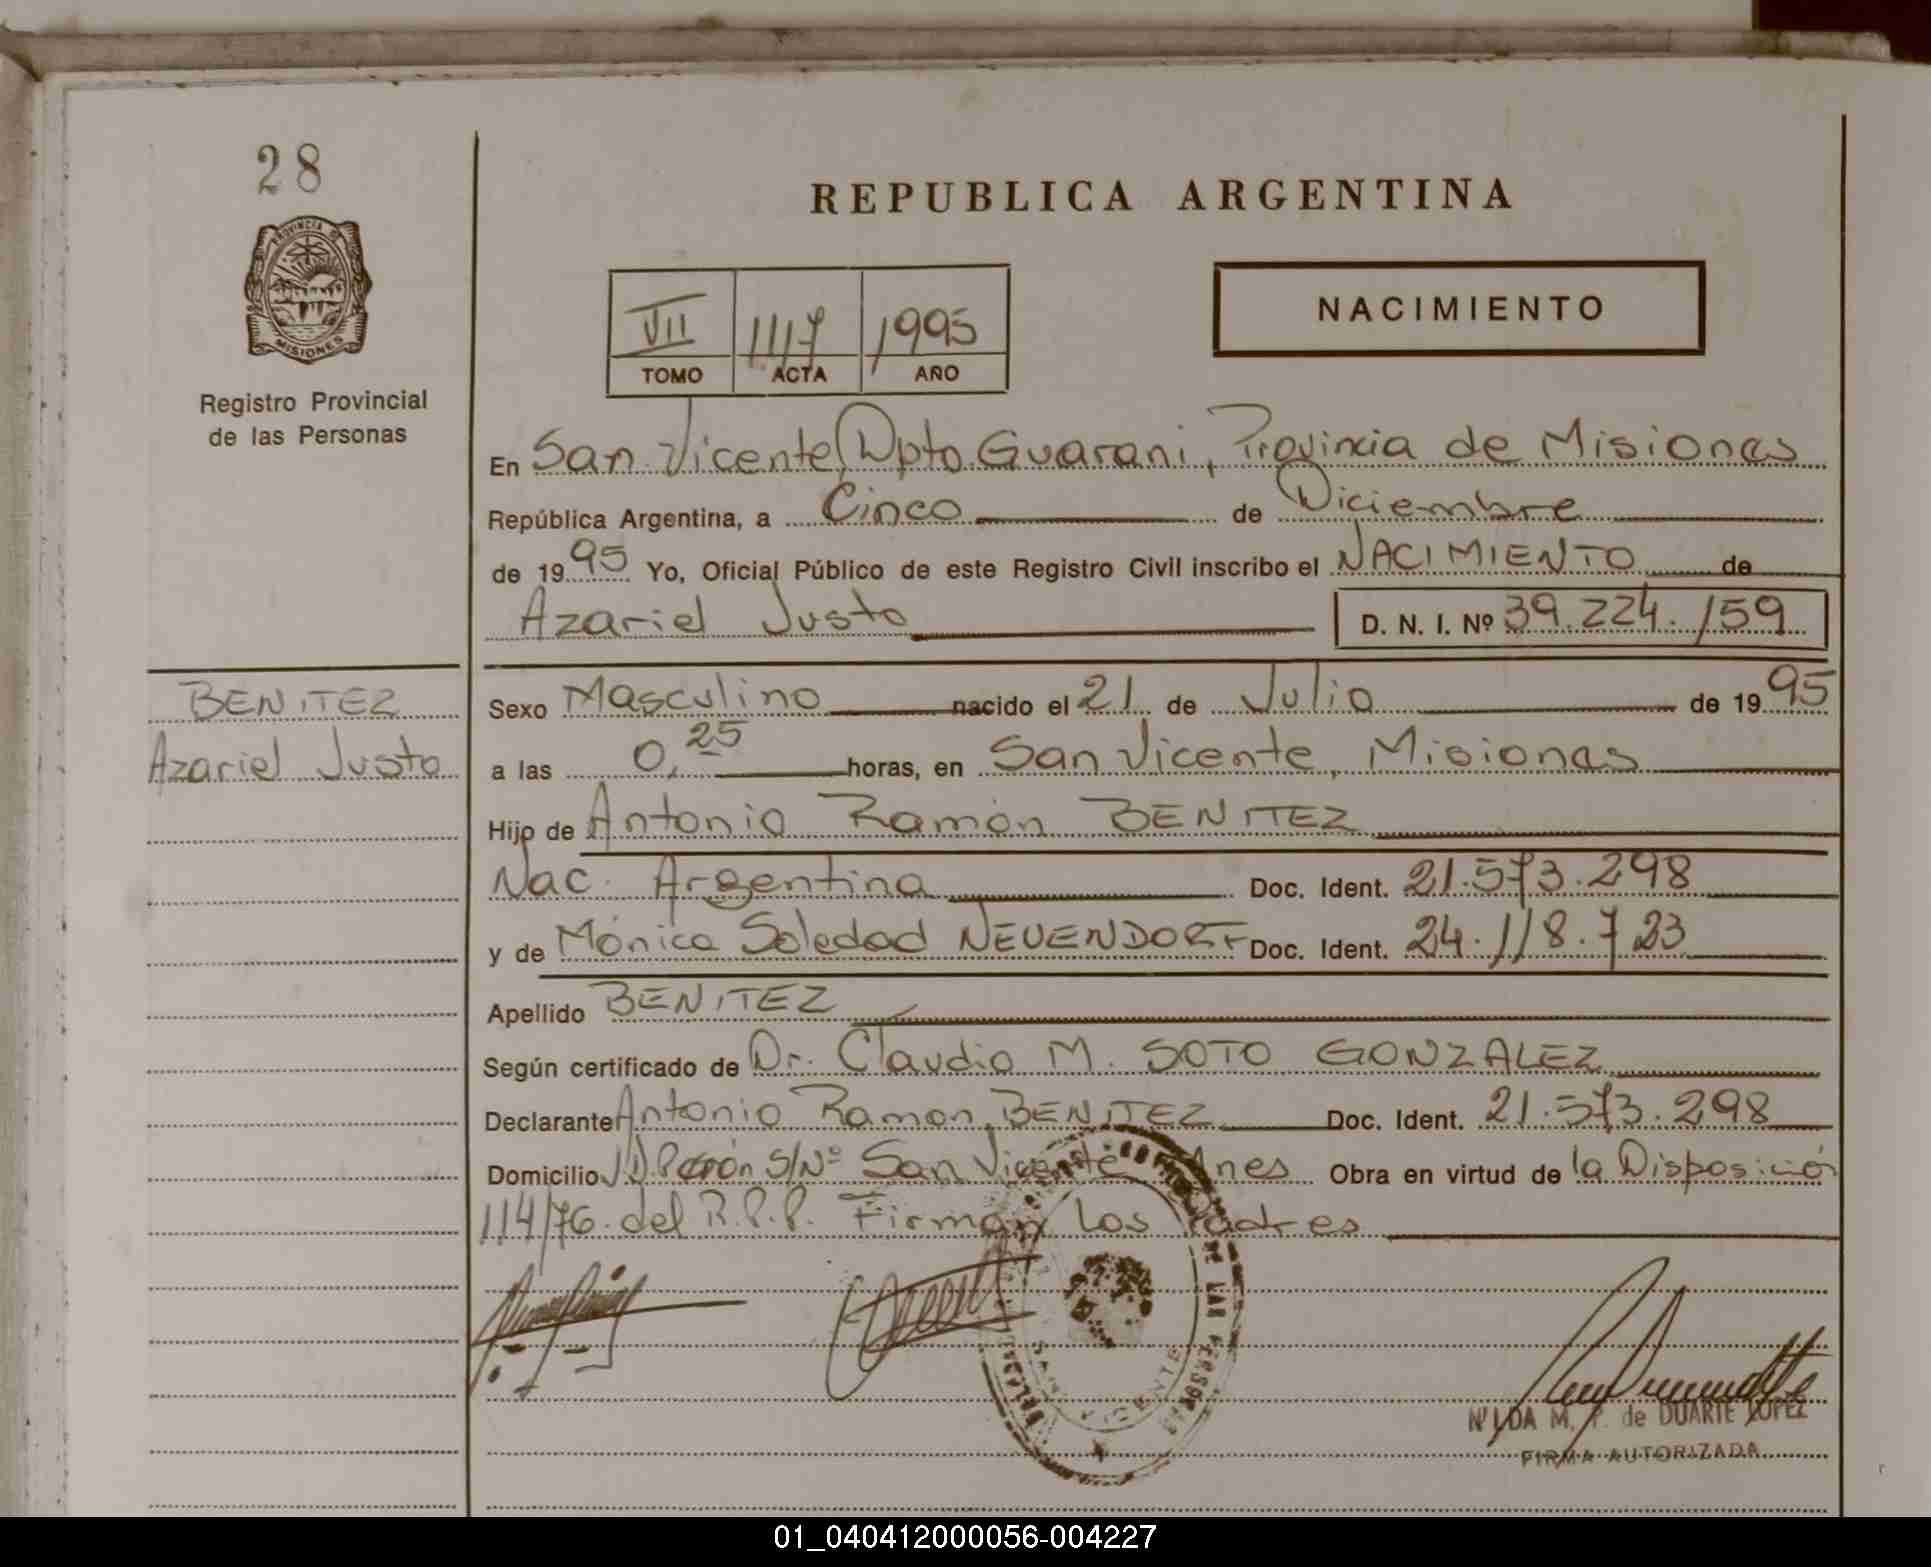 28
REPUBLICA ARGENTINA
PROVINCIA DE
MISIONES
Registro Provincial
de las Personas
VII 1117 1995
TOMO ACTA AÑO
NACIMIENTO
En San Vicente, Dpto. Guarani, Provincia de Misiones
República Argentina, a Cinco de Diciembre
de 1995 Yo, Oficial Público de este Registro Civil inscribo el NACIMIENTO de
Azariel Justo D. N. I. Nº 39.224.159
BENITEZ
Azariel Justo
Sexo Masculino nacido el 21 de Julio de 1995
a las 0,25 horas, en San Vicente, Misiones
Hijo de Antonio Ramón BENITEZ
Nac. Argentina Doc. Ident. 21.573.298
y de Mónica Soledad NEUENDORF Doc. Ident. 24.118.723
Apellido BENITEZ
Según certificado de Dr. Claudio M. SOTO GONZALEZ
Declarante Antonio Ramon BENITEZ Doc. Ident. 21.573.298
Domicilio J.D.Perón S/Nº San Vicente Mnes Obra en virtud de la Disposición
114/76 del R.P.P. Firman Los Padres
DE LAS PERSONAS
SAN VICENTE
NILDA M. P. de DUARTE LOPEZ
FIRMA AUTORIZADA
01_040412000056-004227